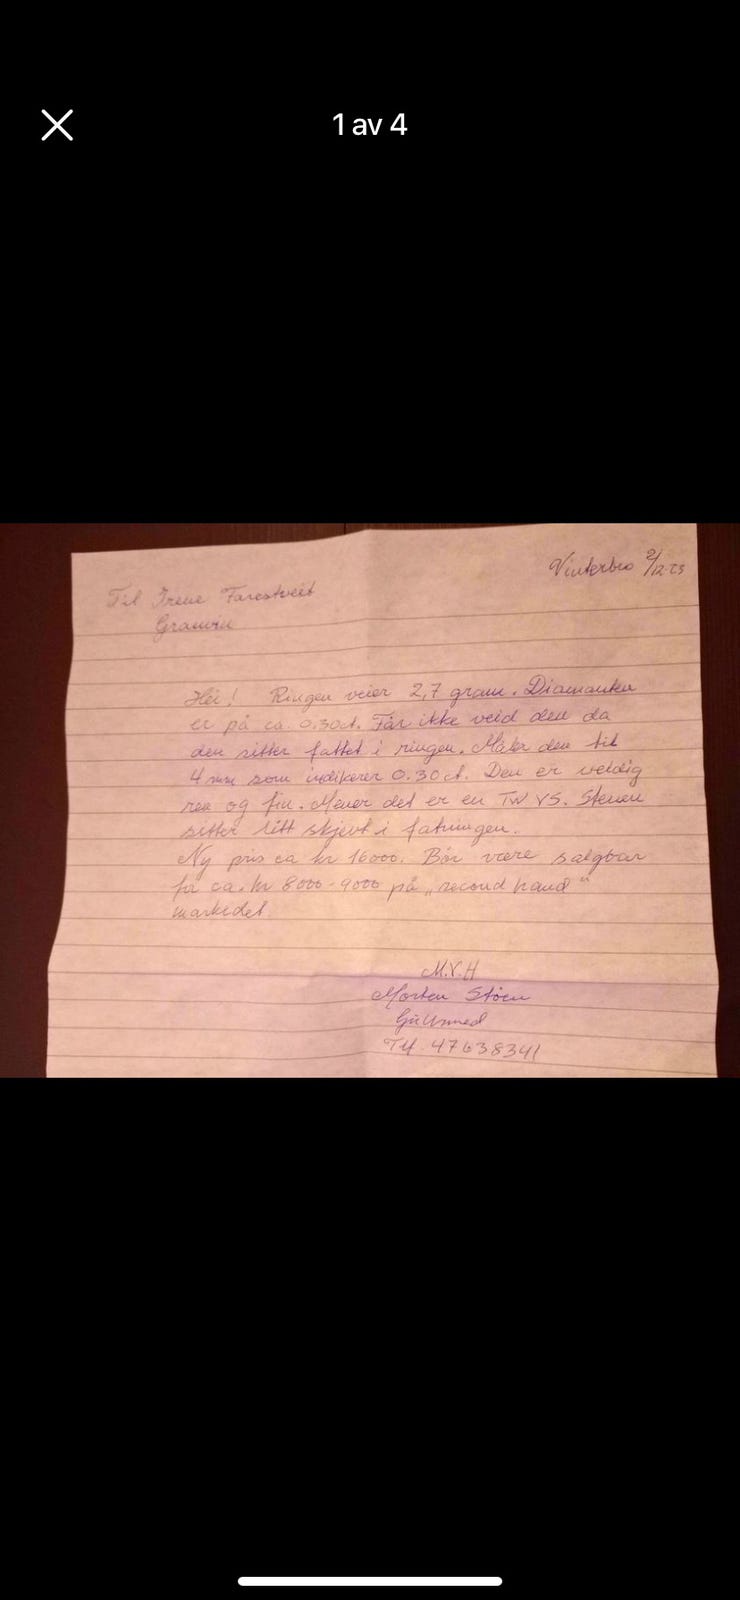 1 av 4
Vinterbro 2/12-23
Til Irene Farestveit
Granvin
Hei! Ringen veier 2,7 gram. Diamanten
er på ca. 0.30ct. Får ikke veid den da
den sitter fattet i ringen. Måler den til
4 mm som indikerer 0.30 ct. Den er veldig
ren og fin. Mener det er en TW VS. Stenen
sitter litt skjevt i fatningen.
Ny pris ca kr 16000. Bør være salgbar
for ca. kr 8000-9000 på „second hand“
markedet
M.V.H
Morten Støen
Gullsmed
Tlf. 47638341